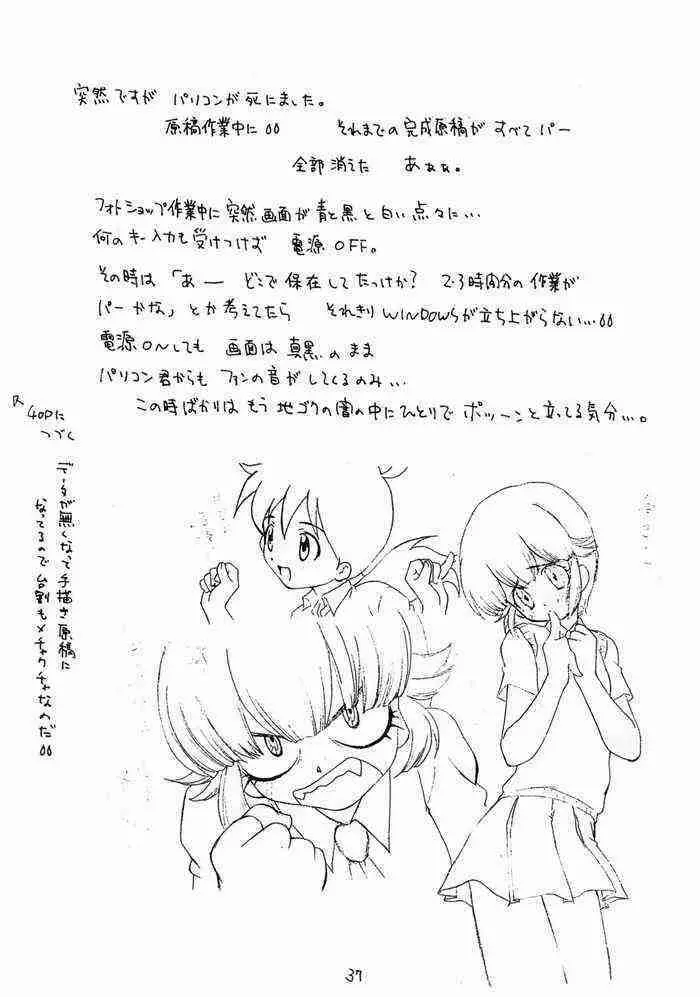 突然ですが パソコンが死にました。
原稿作業中に
それまでの完成原稿が すべてパー
全部消えた あぁぁ。
フォトショップ作業中に突然画面が青と黒と白い点々に…
何のキー入力も受けつけず 電源OFF。
その時は「あ― どこで保存してたっけか? 2・3時間分の作業が
パーかな」とか考えてたら それきりWINDOWSが立ち上がらない…
電源ONしても 画面は真黒のまま
パソコン君からも ファンの音がしてくるのみ…
この時ばかりは もう地ゴクの闇の中にひとりで ポツーンと立ってる気分…。
40Pに
つづく
データが無くなって手描き原稿に
なってるので台割もメチャクチャなのだ
37